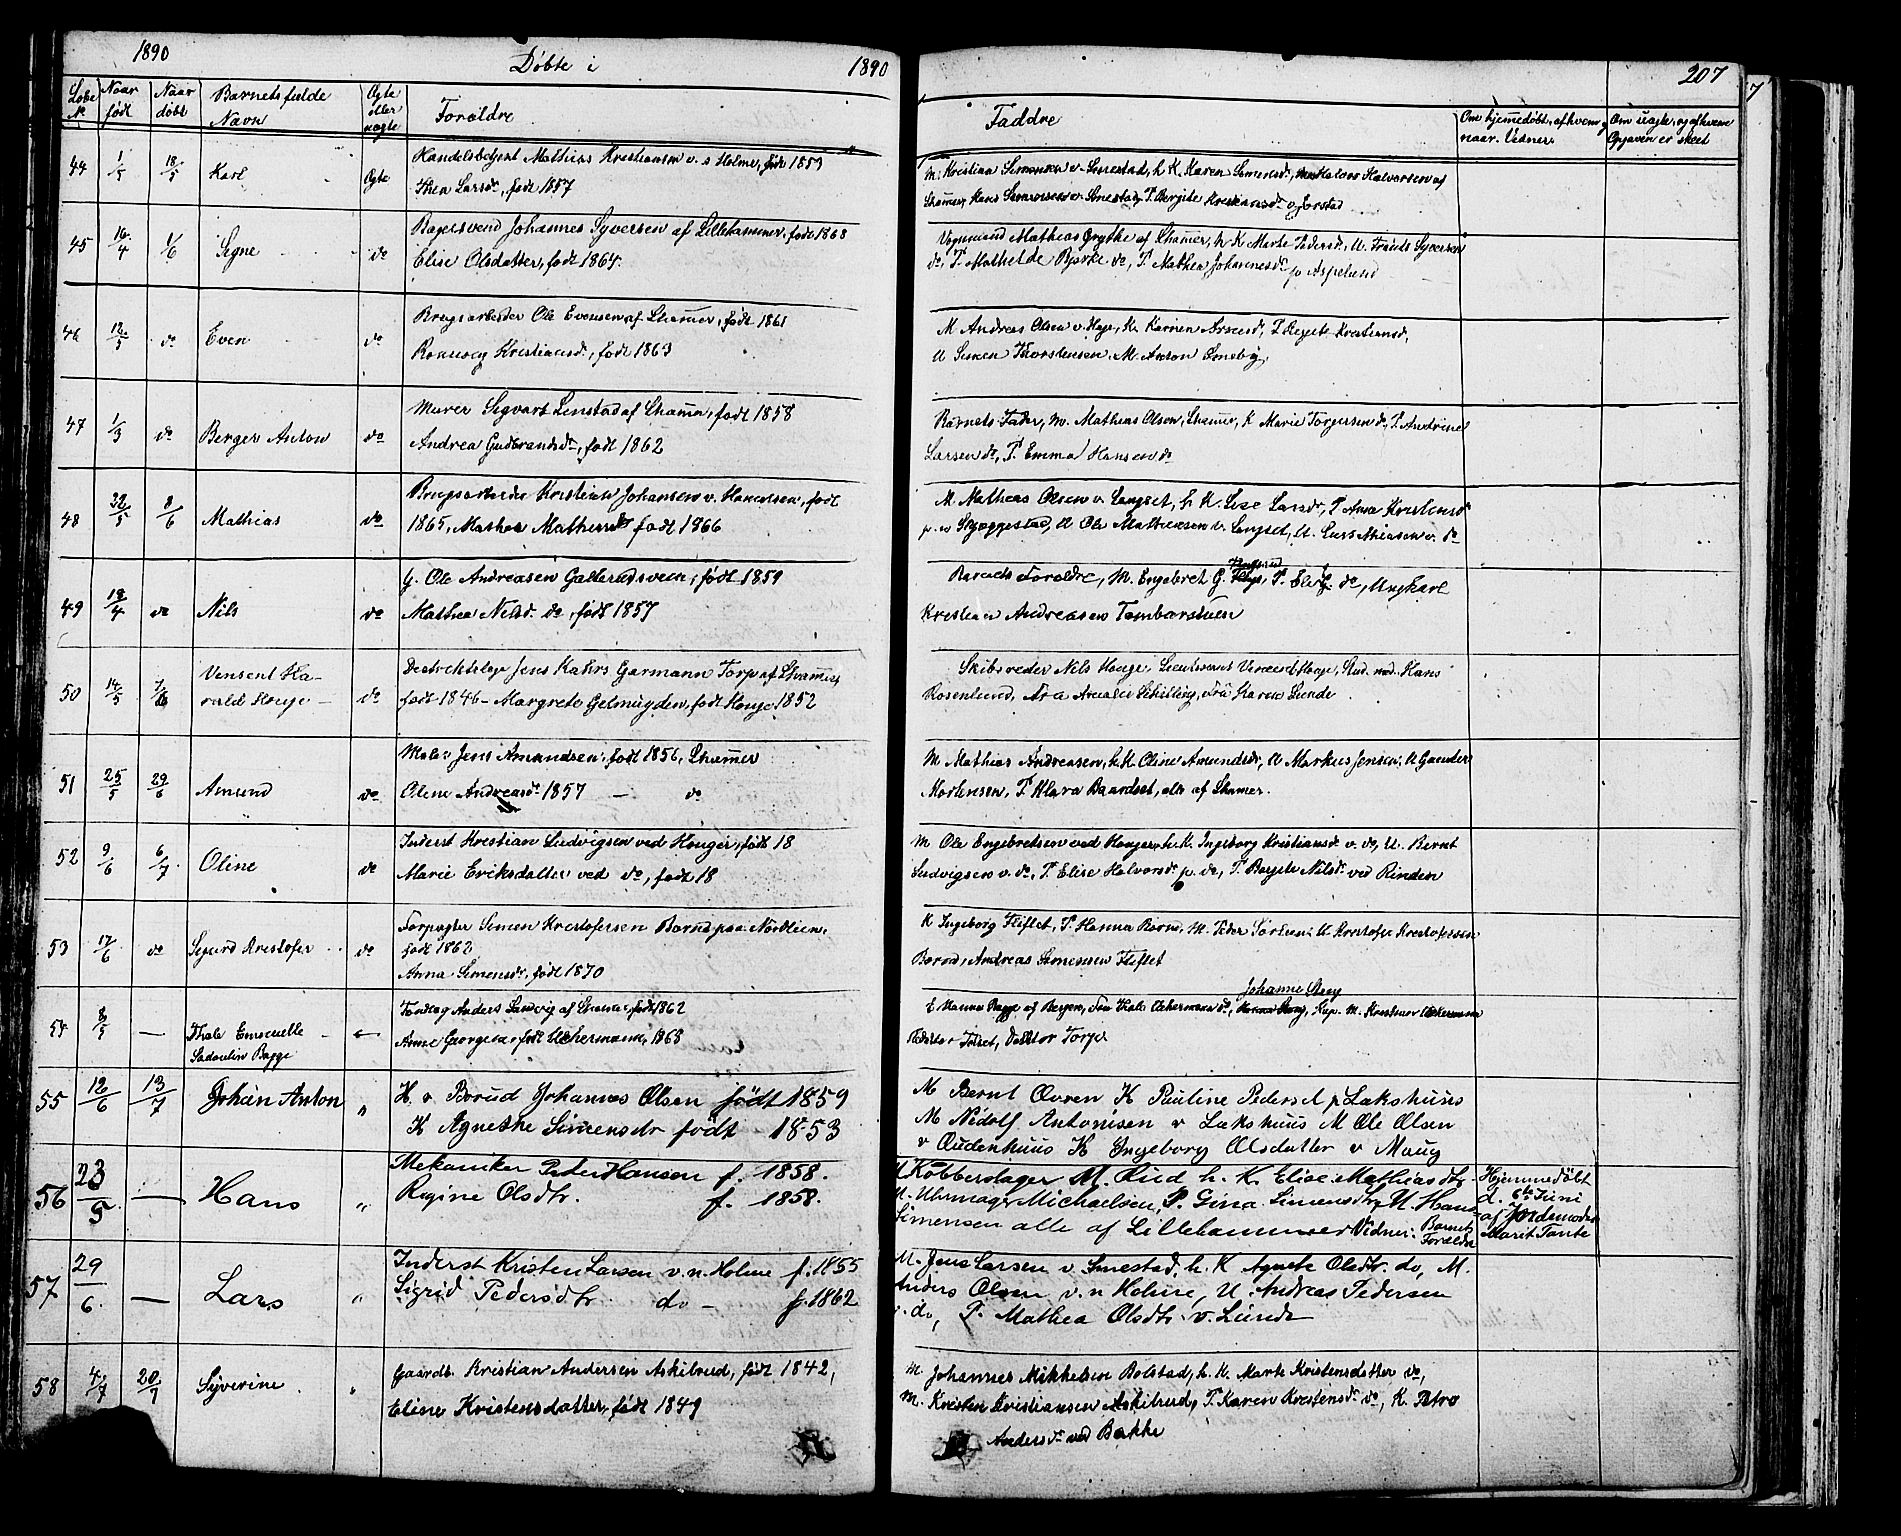 1890 Døbte i 1890
207
Løbe No Naar født Naar døbt Barnets fulde Navn Ægte eller uægte Forældre
Faddre
Om hjemmedøbt, af hvem og naar. Vidner.
Om uægte, og af hvem Opgaven er skeet
44 1/5 18/5 Karl Ægte Handelsbetjent Mathias Kristiansen v. s Holme, født 1859
Thea Larsd., født 1857
M. Kristian Simensen v. Smestad, h. K. Karen Simensd., Halvor Halvorsen af
Lhamer, Hans Simensen v. Smestad, P. Bergite Kristiansd. v. Jorstad
45 16/4 1/6 Signe do Bagersvend Johannes Syversen af Lillehammer, født 1868
Elise Olsdatter, født 1864.
Vognmand Mathias Grytke af Lhamer, h. K Marte Pedersd., U. Frants Syversen
do, P. Mathilde Bjørke do, P. Mathea Johannesd. p. Aspelund
46 12/5 do Even do Brugsarbeider Ole Evensen af Lhamer, født 1861
Rønnaug Kristiansd., født 1863
M Andreas Olsen v. Hage, K. Karnen Arnesd., P Birgite Kristiansd.,
U Simen Thorstensen, M. Anton Smeby,
47 1/3 do Berger Anton do Murer Sigvart Linstad af Lhamer, født 1858
Andrea Gudbrandsd., født 1862
Barnets Fader, M. Mathias Olsen, Lhamer, K Marie Torgersen do, P. Andrine
Larsen do, P. Emma Hansen do
48 8/6 Mathias do Brugsarbeider Kristian Johansen v. , født
1865, Mathea Mathiasd. født 1866
M. Mathias Olsen v. Langset, h. K. Lise Larsd., P Anne Kristensd.
p. Skjeggestad, U Ole Mathiasen v. Langset, U. Lars Mathiasen v. do
49 18/4 do Nils do G. Ole Andreasen Galterudsveen, født 1859
Mathea Nilsd. do, født 1857
Barnets Forældre, M. Engebret G. , P. Eli G. do, Ungkarl
Kristian Andreasen Tambarstuen
50 14/5 7/6 Vensent Harald Houge do Destriktslæge Jens Kahrs Garmann Torp af Lhamer
født 1846 – Margrete Gelmuyden, født Houge 1852
Skibsreder Nils Houge, Lieutenant Vincent Houge, Stud. med. Hans
Rosenlund, Fra Amalie Schilling, Frk Karen Lunde
51 25/5 29/6 Amund do Maler Jens Amundsen, født 1856, Lhamer
Oline Andreasd. 1857 – do
M Mathias Andreasen, h. K. Oline Amundsd., U Markus Jensen, U Gunder
Mortensen, P. Klara Baardset, alle af Lhamer.
52 9/6 6/7 Oline do Inderst Kristian Ludvigsen ved Houger, født 18
Marie Eriksdatter ved do, født 18
M Ole Engebretsen ved Houger, h. K. Ingeborg Kristiansd. v. do, U. Bernt
Ludvigsen v. do, P. Elise Halvorsd. p. do, P. Birgite Nilsd. ved Rinden
53 17/6 do Sigurd Kristofer do Forpagter Simen Kristofersen Borud paa Nordlien,
født 1862
Anna Simensd., født 1870
K Ingeborg Fliflet, P. Hanna Borud, M. Peder Sørlien, U Kristofer Kristofersen
Borud, Andreas Simensen Fliflet
54 8/5 — Thale Emanuelle
Sadoulin Bagge — Toldeg Anders Ludvig af Lhamer, født 1862
Anne Georgine, født Uchermann, 1868
Johanne Steeg
E Hanna Bagge af Bergen, Frk Thale Uchermann do, Kap. M. Kristian Uchermann
Rektor Folset, Doktor Torp
55 12/6 13/7 Johan Anton „ H. v. Borud Johannes Olsen født 1859
K Agnethe Simensdr født 1853
M Bernt Øvren K Pauline Pedersd p Lakshuus
M Nidolf Antonisen v Lakshuus M Ole Olsen
v Audenhuus K Ingeborg Olsdatter v Maug
56 23/5 — Hans „ Mekaniker Peter Hansen f. 1858.
Regine Olsdtr. f. 1858.
M Kobberslager M. Rud h. K. Elise Mathiasdtr.
M. Uhrmager Michaelsen, P. Gina Simensdtr, U. Hans
Simensen alle af Lillehammer Vidner: Barnets Forældre
Hjemmedøbt
d. 6te Juni
af Jordemoder
Marit Tante
57 29/6 — Lars „ Inderst Kristen Larsen v. n. Holme f. 1855
Sigrid Pedersdtr. do – f. 1862
M. Jens Larsen v. Smestad, h. K Agnete Olsdtr. do, M.
Anders Olsen v. n Holme, U. Andreas Pedersen
v. do, P. Mathea Olsdtr. v. Lunde
58 4/7 20/7 Syverine „ Gaardb. Kristian Andersen Askilrud, født 1842,
Eline Kristensdatter, født 1849
M. Johannes Mikkelsen Bolstad, h. K. Marte Kristensdatter do,
M. Kristen Kristiansen Askilrud, P. Karen Kristensd. do, K. Petro
Andersd. ved Bakke